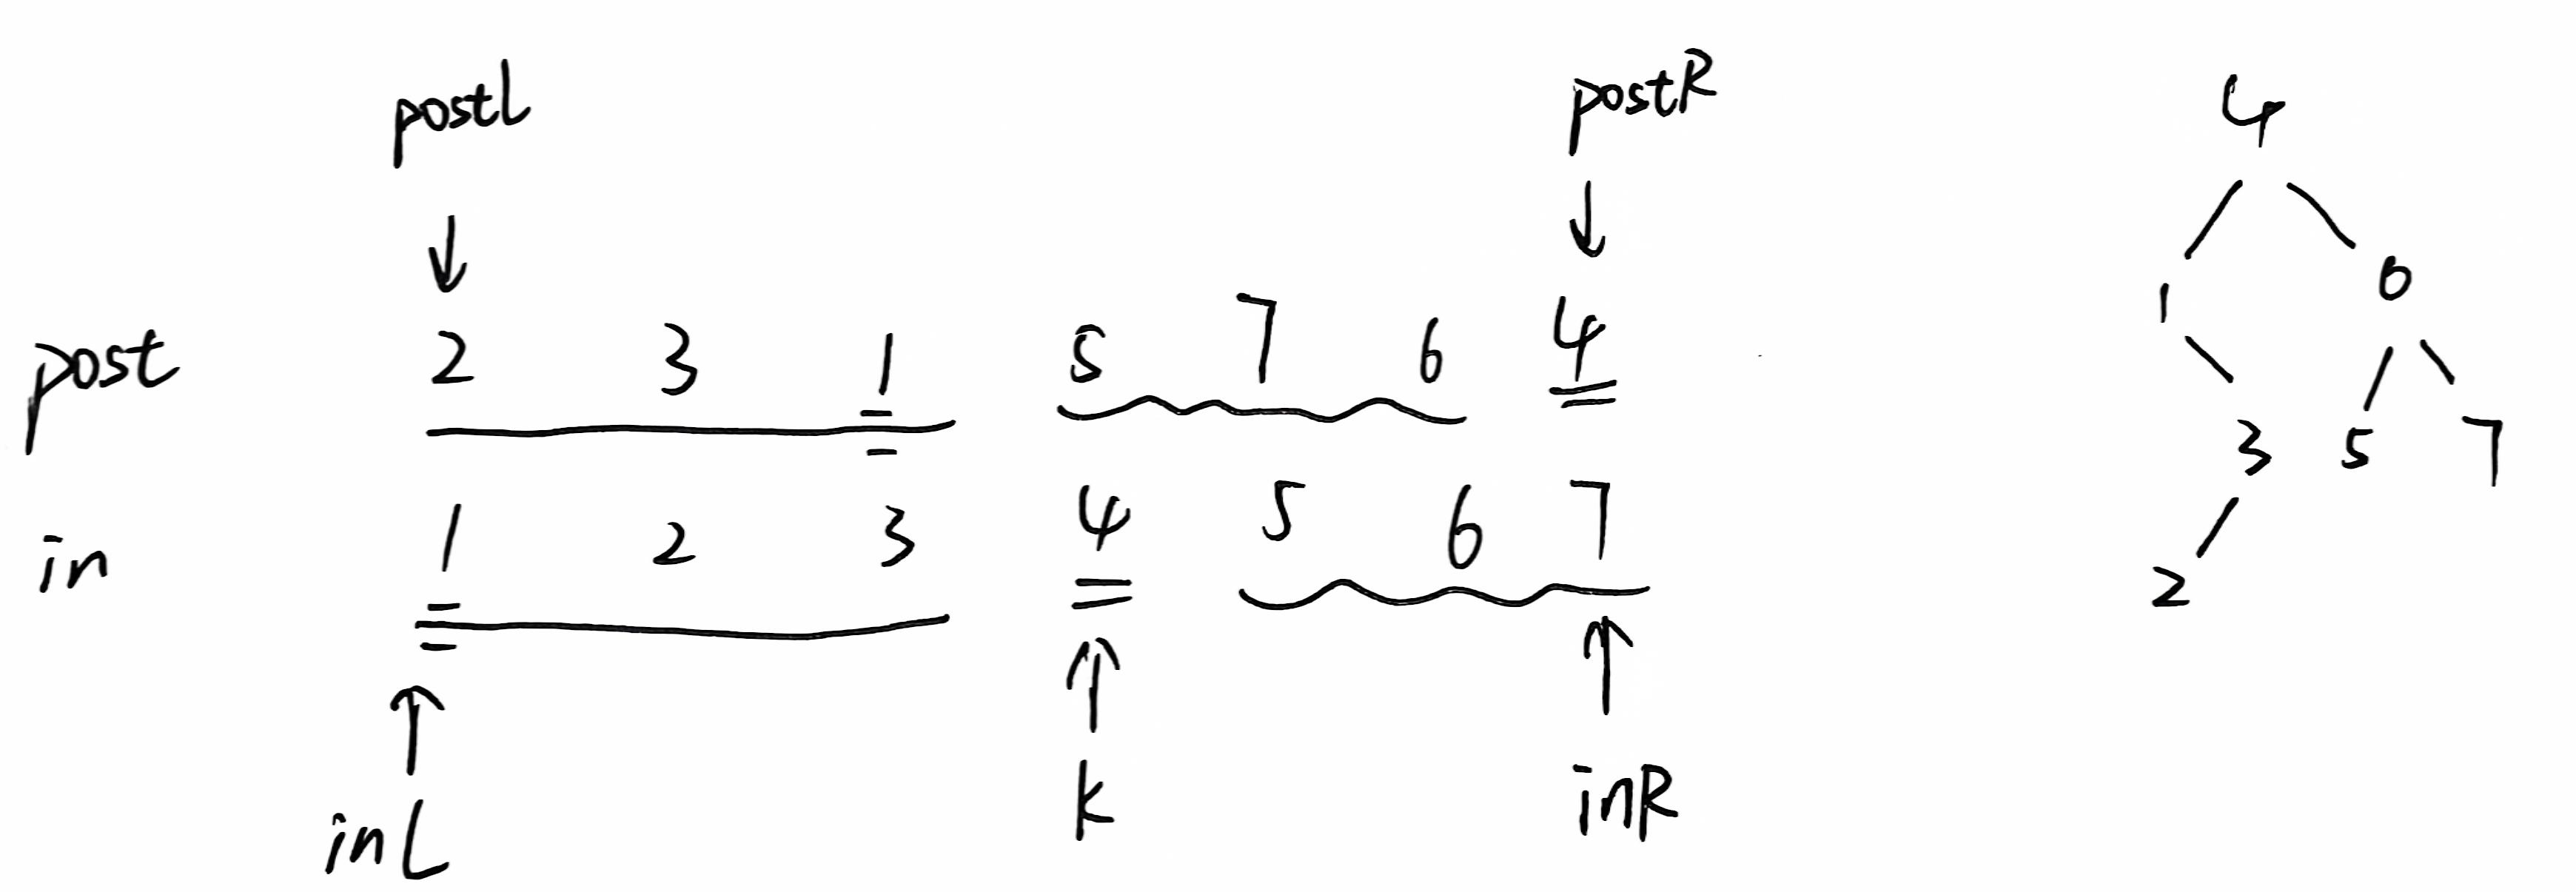 postL postR
post 2 3 1 5 7 6 4
in 1 2 3 4 5 6 7
inL k inR
4
1 6
3 5 7
2